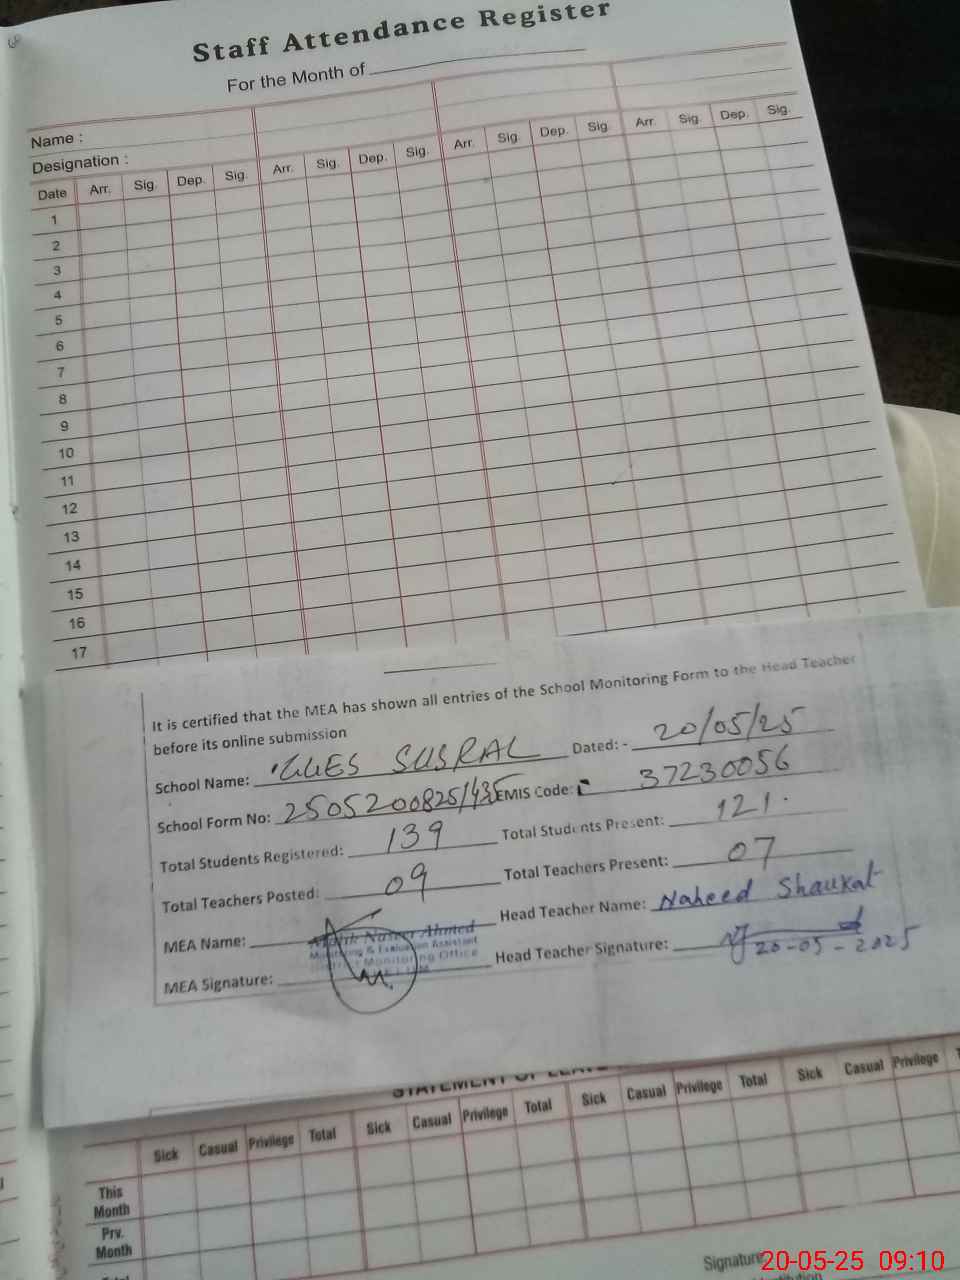 Staff Attendance Register
For the Month of
Name :
Designation :
Date Arr. Sig. Dep. Sig. Arr. Sig. Dep. Sig. Arr. Sig. Dep. Sig. Arr. Sig. Dep. Sig.
1
2
3
4
5
6
7
8
9
10
11
12
13
14
15
16
17
It is certified that the MEA has shown all entries of the School Monitoring Form to the Head Teacher
before its online submission
School Name: GGES SUSRAL Dated: - 20/05/25
School Form No: 2505200825/435 EMIS Code: 37230056
Total Students Registered: 139 Total Students Present: 121
Total Teachers Posted: 09 Total Teachers Present: 07
MEA Name: Malik Naseer Ahmed Head Teacher Name: Naheed Shaukat
Monitoring & Evaluation Assistant
District Monitoring Office
MEA Signature: Head Teacher Signature: 20-05-2025
STATEMENT OF LEAVE
Sick Casual Privilege Total Sick Casual Privilege Total Sick Casual Privilege Total Sick Casual Privilege
This Month
Prv. Month
Signature
20-05-25 09:10